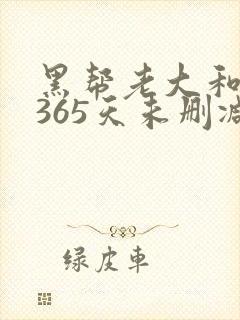 黑帮老大和
365天未删减
绿皮车